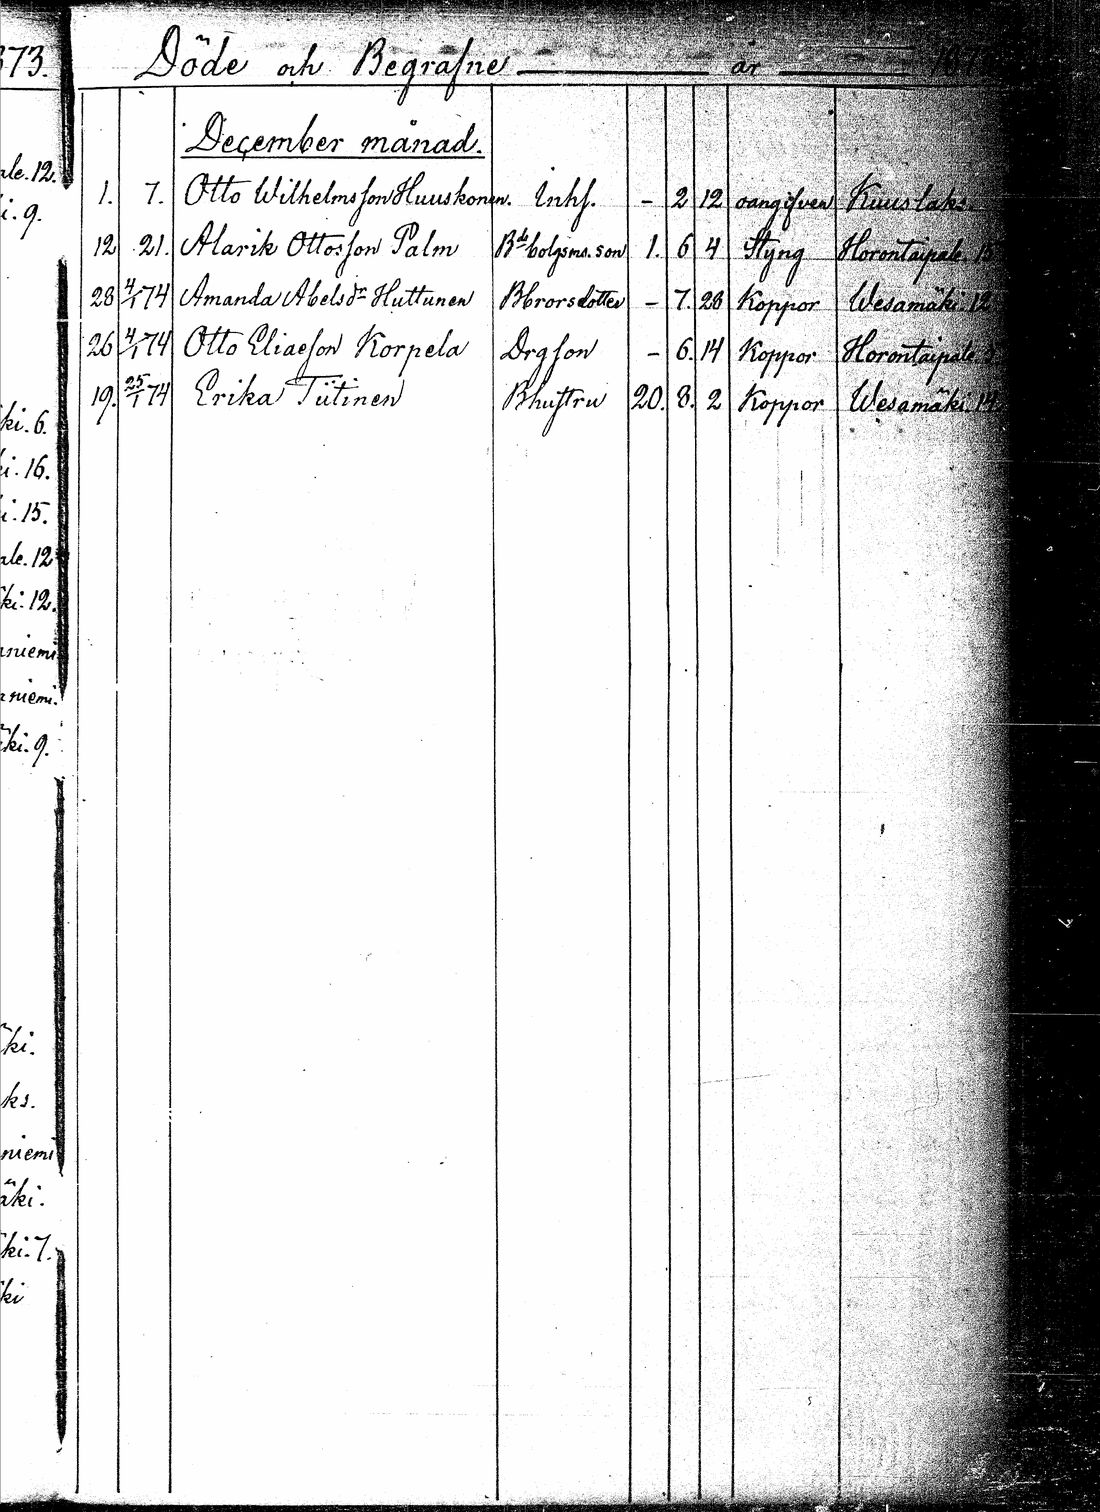 873. Döde och Begrafne år 187
December månad.
1. 7. Otto Wilhelmsson Huuskonen. Inhs. - 2 12 oangifven Kuuslaks.
12 21. Alarik Ottosson Palm Bde bolgsms. son 1. 6 4 Styng Horontaipale. 15
28 4/1 74 Amanda Abelsdr Huttunen Bbrorsdotter - 7. 28 Koppor Wesamäki. 12
26 4/1 74 Otto Eliaeson Korpela Drgson - 6. 14 Koppor Horontaipale.
19. 25/1 74 Erika Tiitinen Bhustru 20. 8. 2 Koppor Wesamäki. 14
ale. 12.
i. 9.
ki. 6.
ki. 16.
i. 15.
ale. 12
ki. 12.
niemi
niemi.
ki. 9.
ki.
ks.
niemi
äki.
ki. 7.
ki